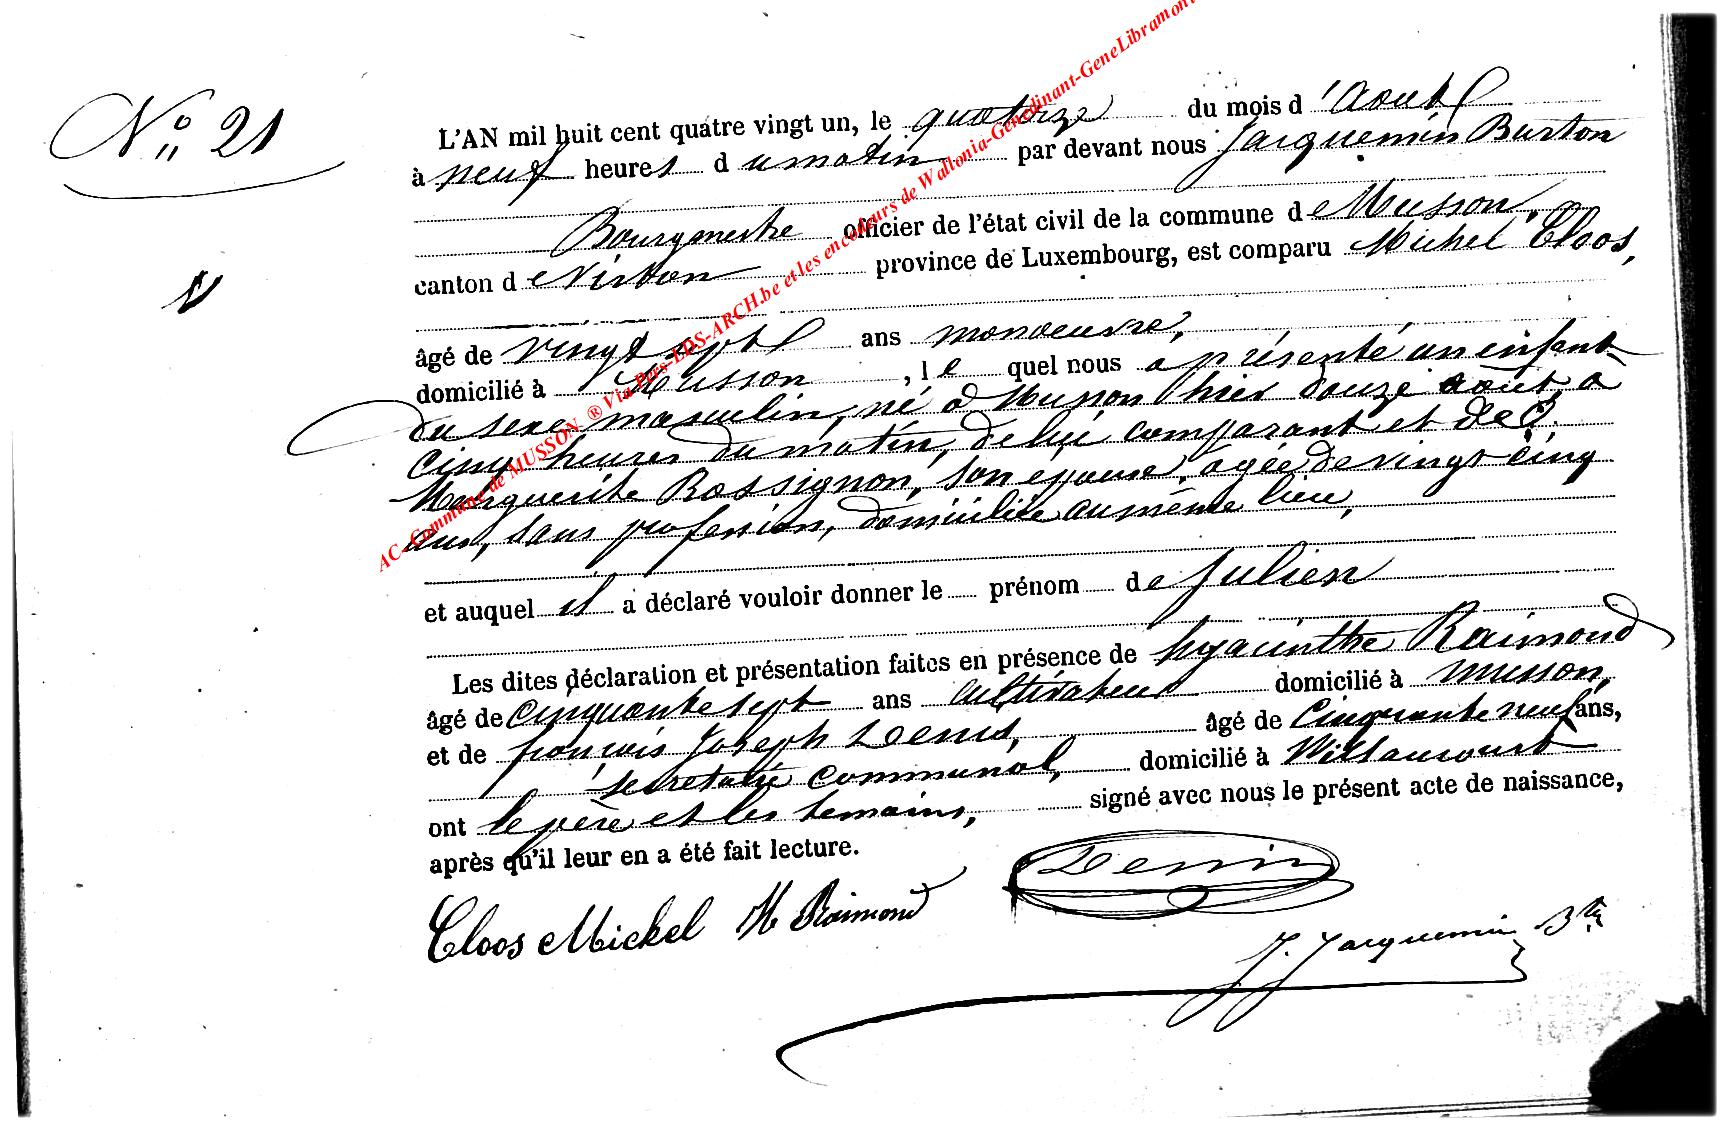 N° 21
L'AN mil huit cent quatre vingt un, le quatorze du mois d'Aout
à neuf heures du matin par devant nous Jacquemin Burton
Bourgmestre officier de l'état civil de la commune de Musson
canton de Virton province de Luxembourg, est comparu Michel Cloos,
âgé de vingt sept ans manoeuvre,
domicilié à Musson, lequel nous a présenté un enfant
du sexe masculin, né à Musson hier douze août, à
cinq heures du matin, de lui comparant et de
Marguerite Rossignon, son épouse, agée de vingt cinq
ans, sans profession, domiciliée au même lieu,
et auquel il a déclaré vouloir donner le prénom de Julien
Les dites déclaration et présentation faites en présence de hyacinthe Raimond
âgé de cinquante sept ans cultivateur domicilié à Musson,
et de françois Joseph Denis, âgé de Cinquante neuf ans,
secretaire communal, domicilié à Willancourt
ont le père et les temoins, signé avec nous le présent acte de naissance,
après qu'il leur en a été fait lecture.
Denis
Cloos Michel H Raimond
J. Jacquemin Btn
AC-Commune de MUSSON ® Via Pers-LDS-ARCH.be et les encodeurs de Wallonia-Genedinant-GeneLibramont